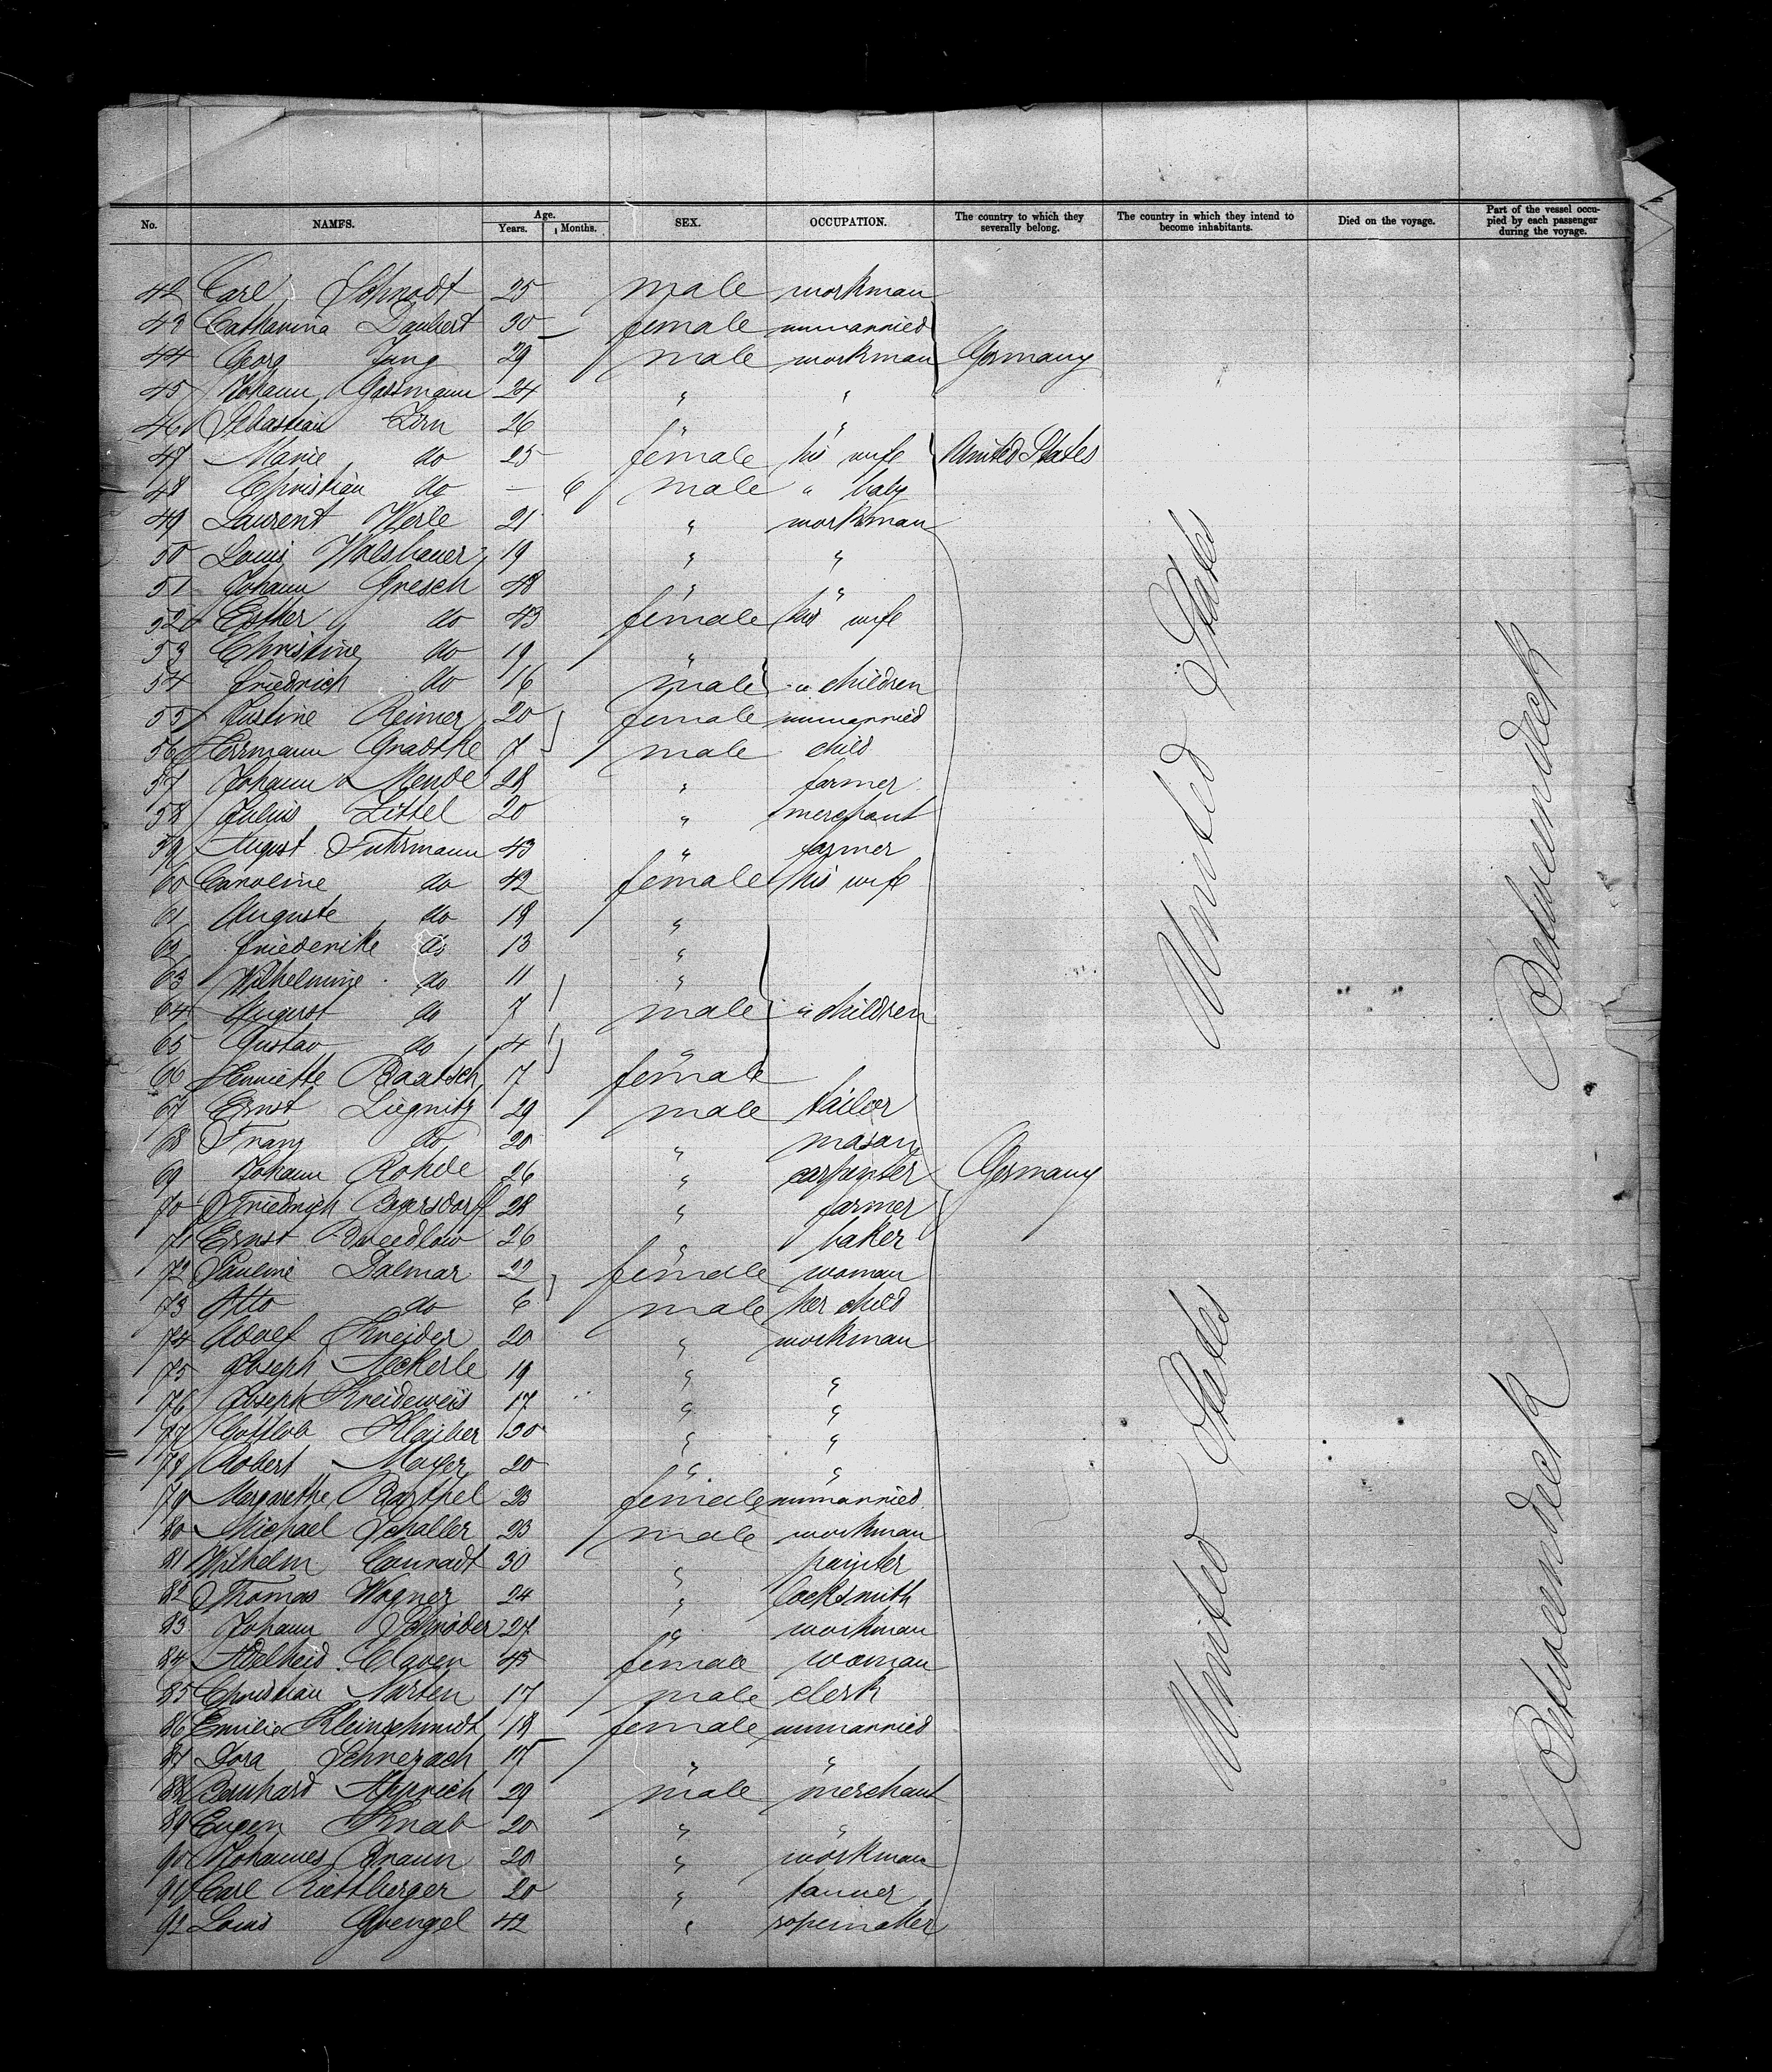 No. NAMES. Age. Years. Months. SEX. OCCUPATION. The country to which they severally belong. The country in which they intend to become inhabitants. Died on the voyage. Part of the vessel occupied by each passenger during the voyage.
42 Carl 25 male workman
43 Catharina Daubert 30 female unmarried
44 Georg Jung 29 male workman Germany
45 Johann Gassmann 24 " "
46 Sebastian Zorn 26 " "
47 Marie do 25 female his wife United States
48 Christian do - 6 male " baby
49 Laurent Werle 21 " workman
50 Louis 19 " "
51 Johann Gresch 48 " "
52 Esther do 43 female his wife
53 Christine do 19 "
54 Friedrich do 16 male " children
55 Justine Reimer 20 female unmarried
56 Herrmann Gradtke 7 male child
57 Johann Mende 28 " farmer
58 Julius Littel 20 " merchant
59 August Fuhrmann 43 " farmer
60 Caroline do 42 female his wife
61 Auguste do 18 "
62 Friederike do 13 "
63 Wilhelmine do 11 "
64 August do 7 male " children
65 Gustav do 4 "
66 Henriette Raatsch 7 female
67 Ernst Liegnitz 29 male tailor
68 Franz do 20 " mason
69 Johann Rohde 26 " carpinter Germany
70 Friedrich 28 " farmer
71 Ernst 26 " baker
72 Pauline Dalmar 22 female woman
73 Otto do 6 male her child
74 Adolf Kneider 20 " workman
75 Joseph 19 " "
76 Joseph Kreideweis 17 " "
77 Gottlob Klaiber 30 " "
78 Robert Mayer 20 " "
79 Margarethe Barthel 23 female unmarried
80 Michael Schaller 23 male workman
81 Wilhelm Conradt 30 " painter
82 Thomas Wagner 24 " locksmith
83 Johann Schröder 27 " workman
84 Adelheid Claven 45 female woman
85 Christian Narten 17 male clerk
86 Emilie Kleinschmidt 18 female unmarried
87 Dora 17 " "
88 Bernhard 29 male merchant
89 Eugen Knab 20 " "
90 Johannes Braun 20 " workman
91 Carl Riethberger 20 " tanner
92 Louis Gwengel 42 " ropemaker
United States
United States
Betweendeck
Betweendeck